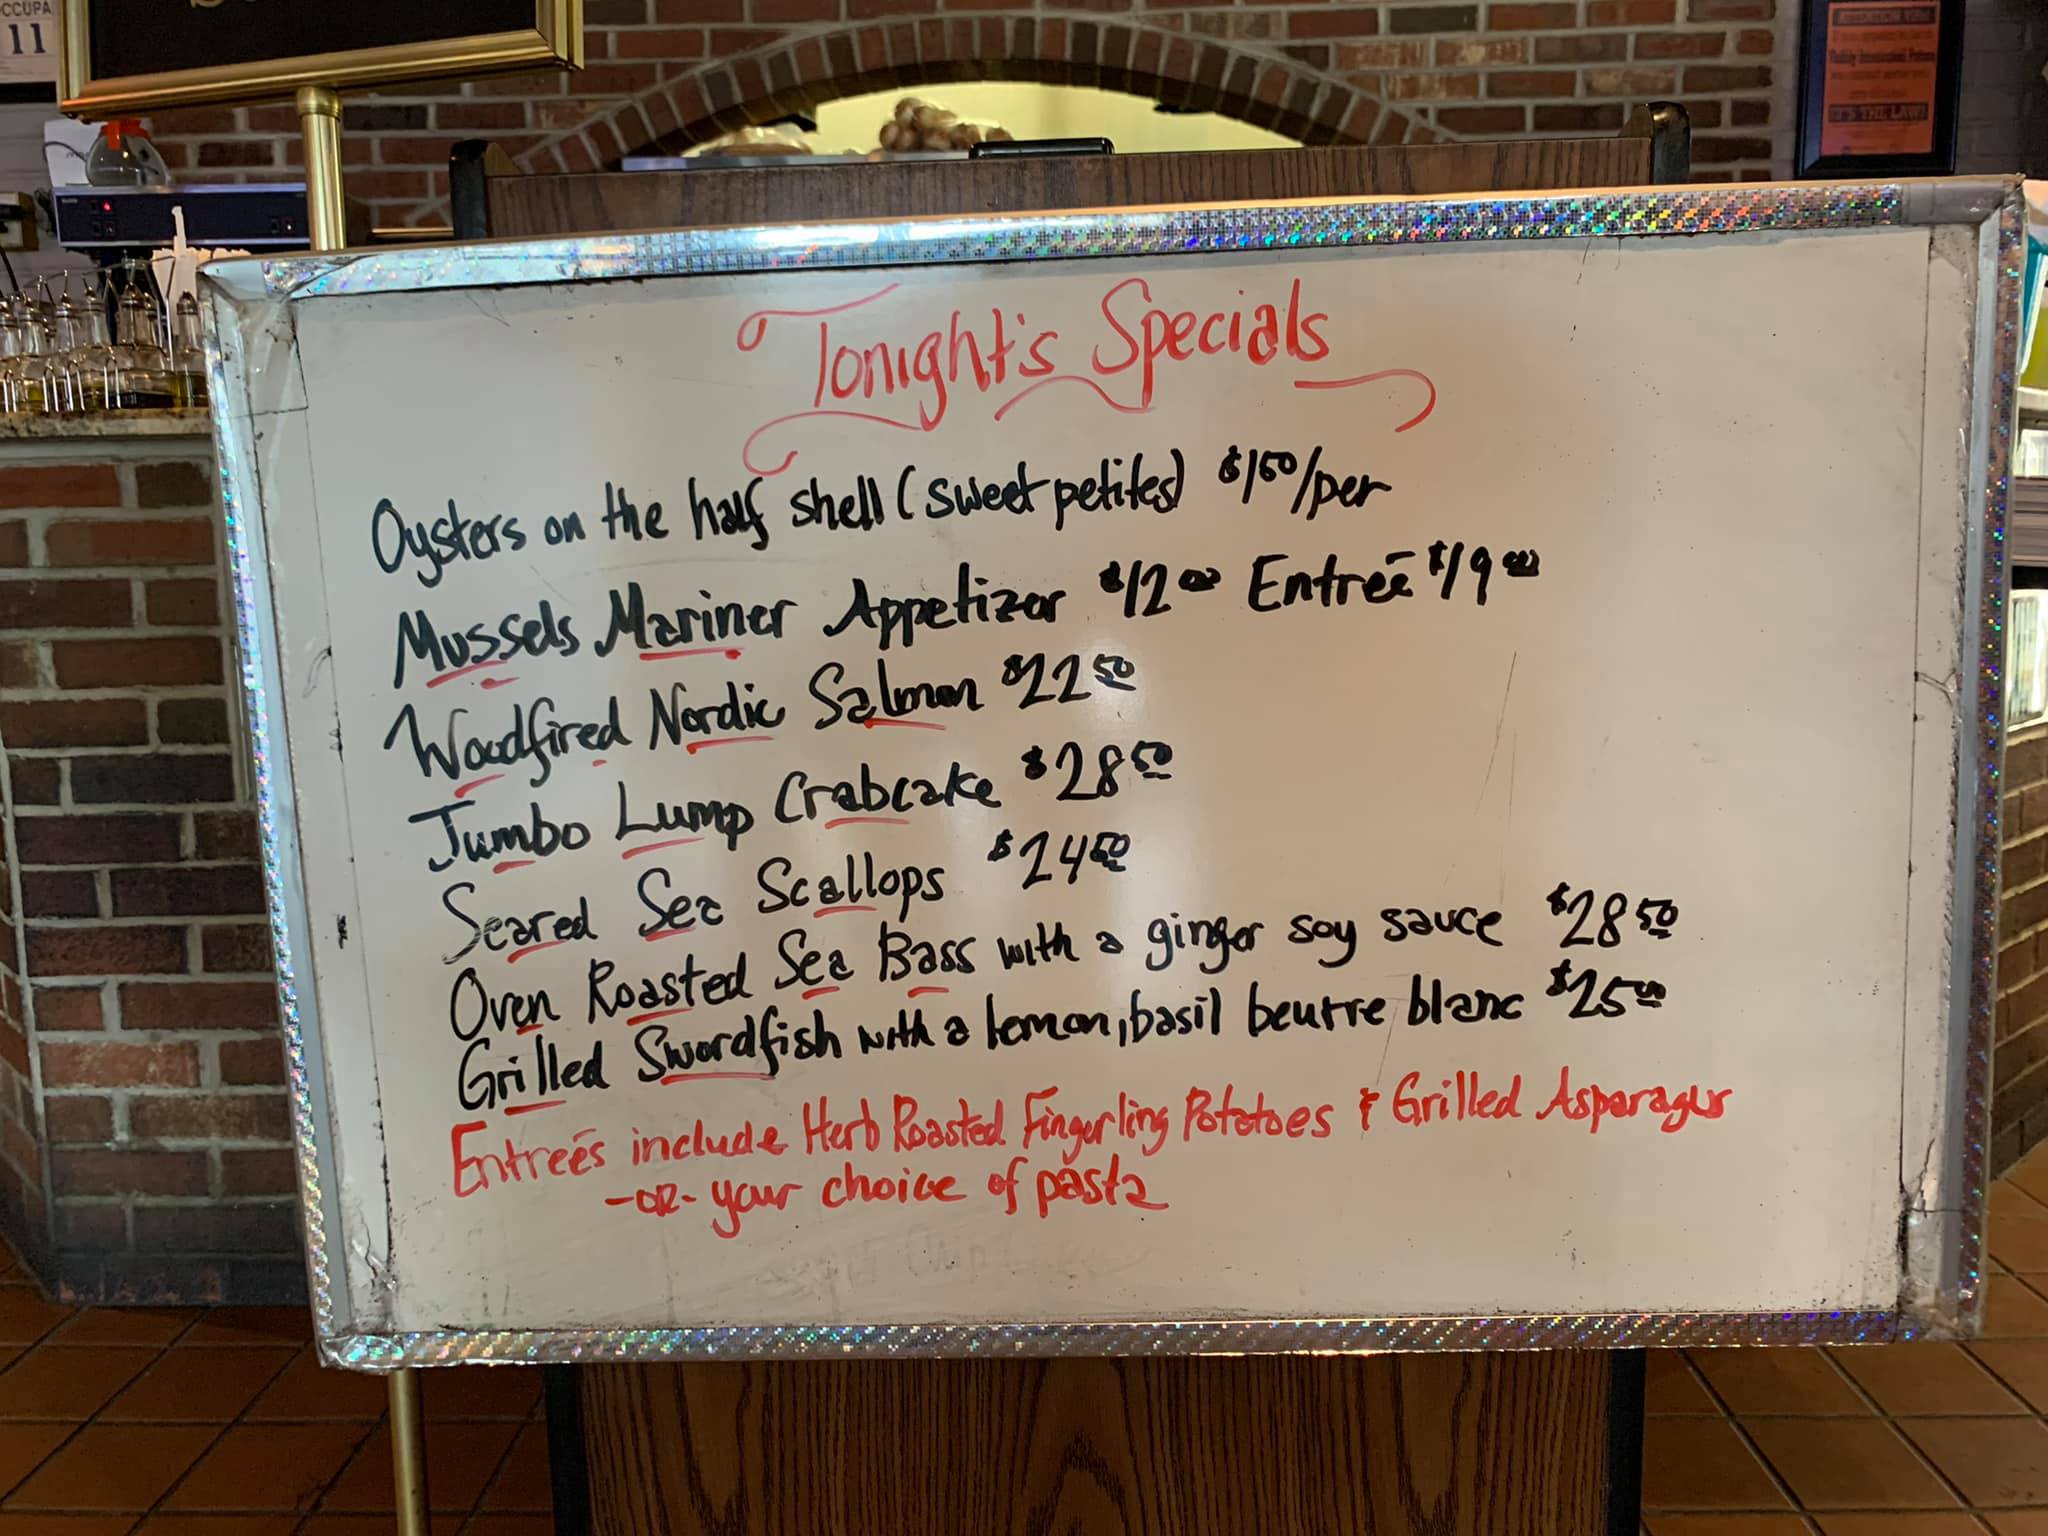 OCCUPA
11
Tonight's Specials
Oysters on the half shell (sweet petites) $1.50/per
Mussels Mariner Appetizer $12.00 Entreé $19.00
Woodfired Nordic Salmon $22.50
Jumbo Lump Crabcake $28.50
Seared Sea Scallops $24.50
Oven Roasted Sea Bass with a ginger soy sauce $28.50
Grilled Swordfish with a lemon, basil beurre blanc $25.00
Entreés include Herb Roasted Fingerling Potatoes & Grilled Asparagus
-OR- your choice of pasta
IT'S THE LAW!